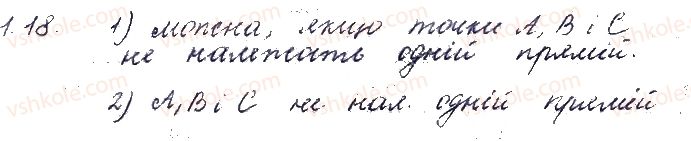 1.18. 1) можна, якщо точки A, B і C
не належать одній прямій.
2) A, B і C не нал. одній прямій